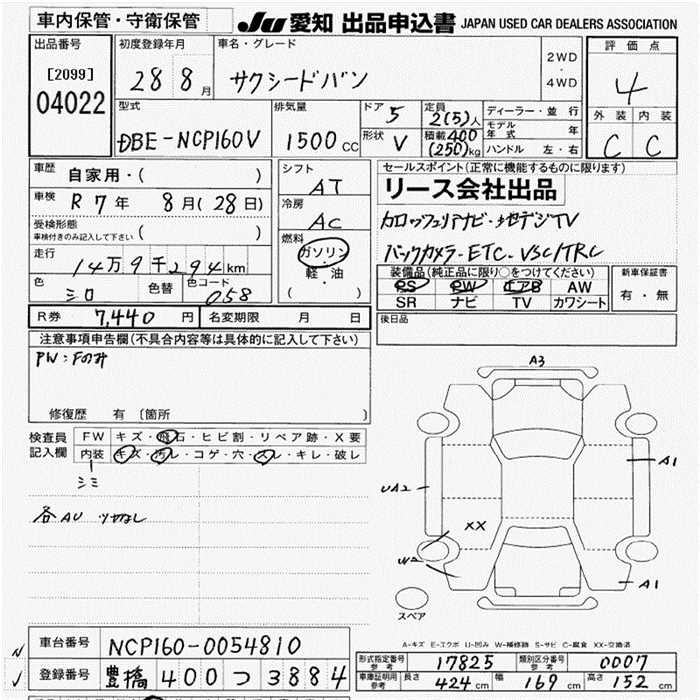 車内保管・守衛保管
JU 愛知 出品申込書 JAPAN USED CAR DEALERS ASSOCIATION
出品番号 初度登録年月 車名・グレード 評価点
[2099] 28 8月 サクシードバン 2WD・4WD 4
04022 型式 排気量 ドア 5 定員 2(5)人 ディーラー・並行 外装 内装
DBE-NCP160V 1500cc 形状 V 積載 400(250)kg モデル年式 年 C C
ハンドル 左・右
車歴 自家用・( ) シフト AT セールスポイント(正常に機能するものに限ります)
車検 R7年 8月(28日) 冷房 AC リース会社出品
受検形態 車検付きのみ記入して下さい ( ) 燃料 ガソリン・軽油 ( )
走行 14万9千294km バックカメラ-ETC-VSC/TRC
色 シロ 色替 色コード 058 装備品(純正品に限り○をつけてください) 新車保証書
PS PW エアB AW 有・無
SR ナビ TV カワシート
R券 7,440円 名変期限 月 日 後日品
注意事項申告欄(不具合内容等は具体的に記入して下さい)
PW:Fのみ
修復歴 有 [箇所 ]
検査員記入欄 FW キズ・飛石・ヒビ割・リペア跡・X要
内装 キズ・汚レ・コゲ・穴・スレ・キレ・破レ
シミ
各AU
A3
A1
UA2
XX
W2
A1
スペア
A-キズ E-エクボ U-凹み W-補修跡 S-サビ C-腐食 XX-交換済
車台番号 NCP160-0054810
登録番号 豊橋 400 つ 3884
形式指定番号 参考 17825 類別区分番号 参考 0007
車庫証明用 参考 長さ 424cm 幅 169cm 高さ 152cm